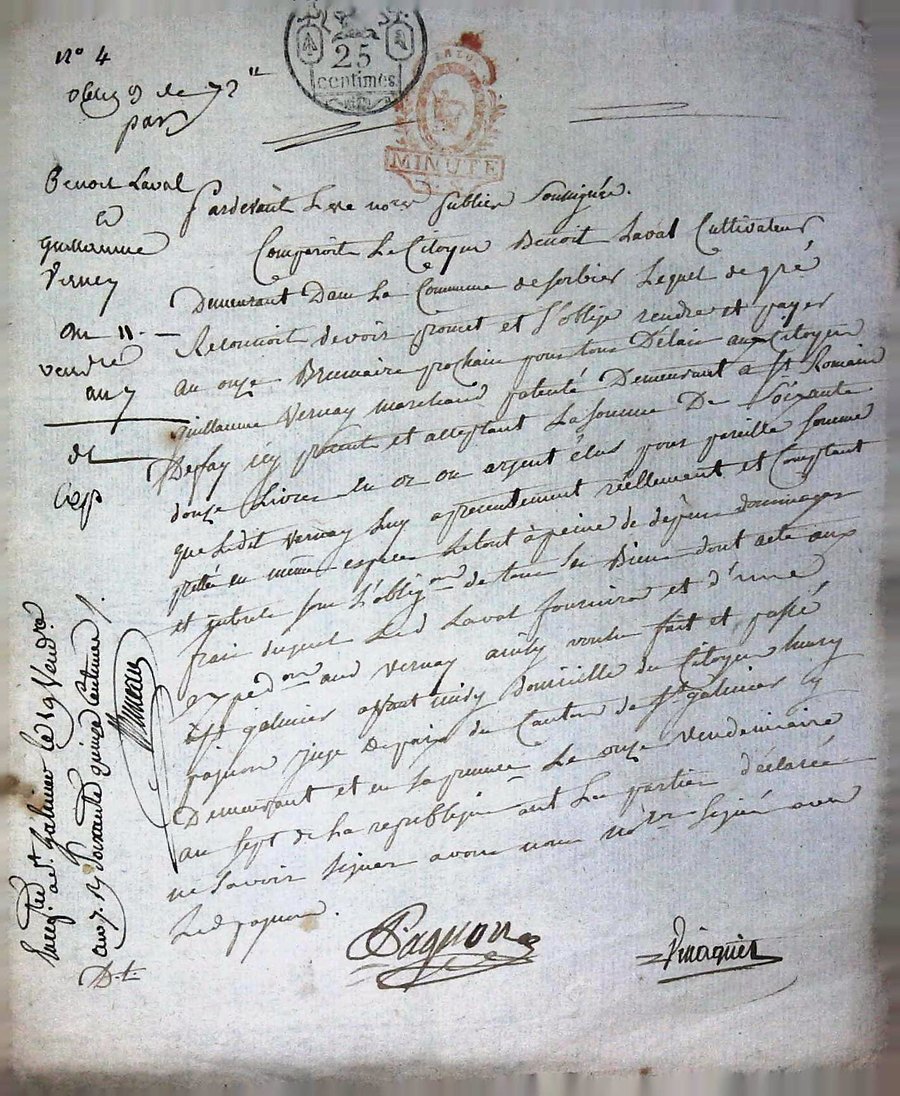 N° 4
oblig on de 72 ll
par
25
centimes.
MINUTE
Benoit Laval
a
guillaume
Verney
du 11.
vendre
an 7
Pardevant Les nores publics soussignés.
Comparoit Le Citoyen Benoit Laval Cultivateur
Demeurant Dans La Commune de sorbier Lequel de gré
Reconnoit devoir promet et s'oblige rendre et payer
au onze Brumaire prochain pour tout Délai au Citoyen
guillaume Vernay marchand patenté Demeurant a St Romain
icy présent et acceptant La somme De soixante
douze Livres en or ou argent élus pour pareille somme
que Ledit Vernay luy a présentement réellement et Comptant
prêtté en même espèce Le tout à peine de dépens dommages
et interets sous L'obligon de tous ses Biens dont acte aux
frais duquel Led Laval fournira et d'une
expedon aud Vernay ainsy voulu fait et passé
à St galmier avant midy Domicille du Citoyen
pagnon juge de paix du Canton de St galmier y
Demeurant et en sa presence Le onze Vendemiaire
an sept de La republique ont Les parties déclaré
ne Savoir signer avons nous notres signé avec
Led pagnon.
Pagnon
Enreg. a St galmier le 19 Vendre
an 7. Soixante quinze Centimes